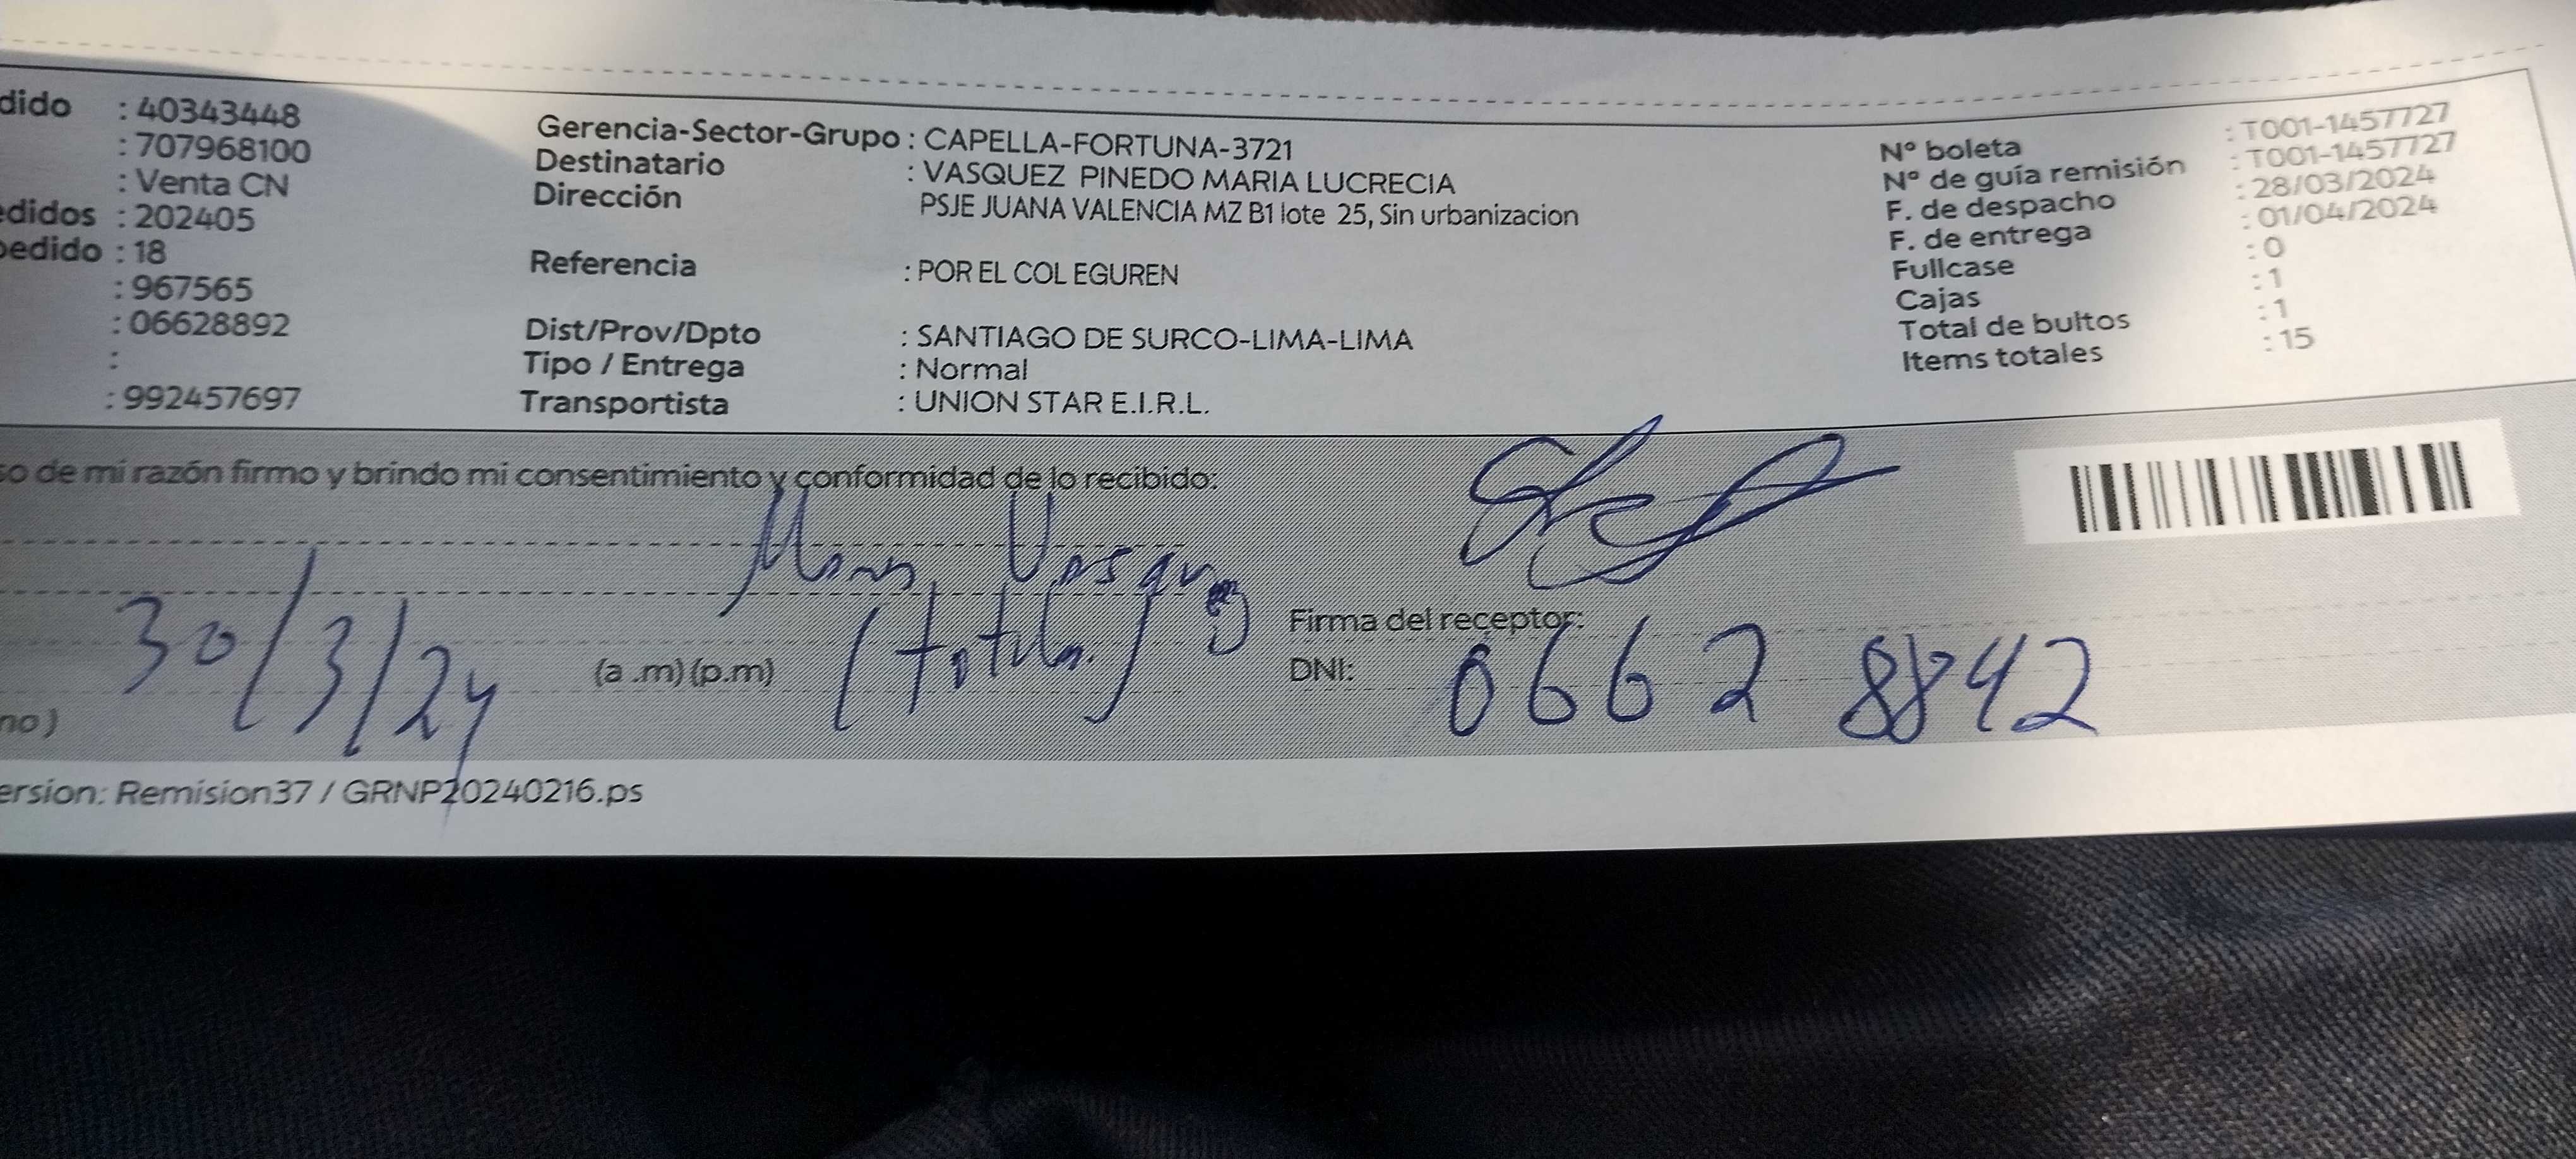 dido : 40343448
: 707968100
: Venta CN
edidos : 202405
pedido : 18
: 967565
: 06628892
:
: 992457697
Gerencia-Sector-Grupo : CAPELLA-FORTUNA-3721
Destinatario : VASQUEZ PINEDO MARIA LUCRECIA
Dirección PSJE JUANA VALENCIA MZ B1 lote 25, Sin urbanizacion
Referencia : POR EL COL EGUREN
Dist/Prov/Dpto : SANTIAGO DE SURCO-LIMA-LIMA
Tipo / Entrega : Normal
Transportista : UNION STAR E.I.R.L.
N° boleta : T001-1457727
N° de guía remisión : T001-1457727
F. de despacho : 28/03/2024
F. de entrega : 01/04/2024
Fullcase : 0
Cajas : 1
Total de bultos : 1
Items totales : 15
so de mi razón firmo y brindo mi consentimiento y conformidad de lo recibido:
30/3/24 (a .m) (p.m) (titular)
Firma del receptor:
DNI: 0662 8842
no )
ersion: Remision37 / GRNP20240216.ps